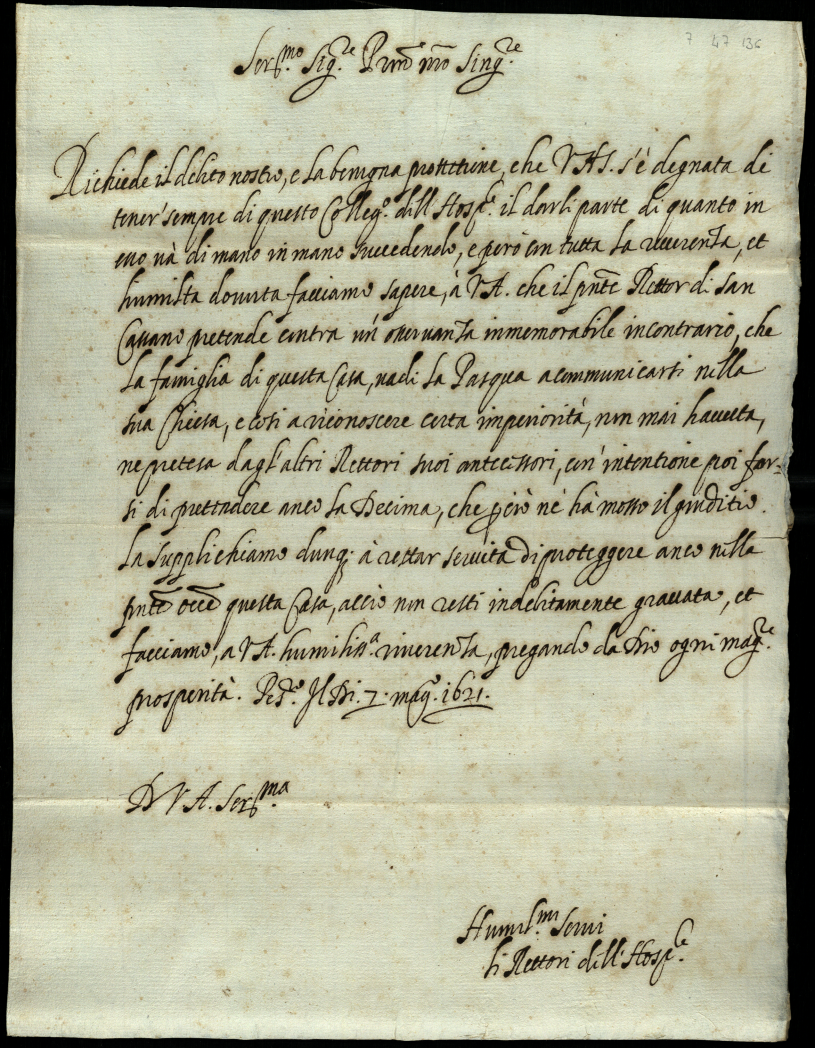 7 47 136
Ser.mo Sig.re Prone nro Sing.re
Richiede il debito nostro, e la benigna prottetione, che V.A.S. s'è degnata di
tener' sempre di questo Colleg.o dell'Hosp.le il darli parte di quanto in
esso và di mano in mano succedendo, e però con tutta la riverenza, et
humiltà dovuta facciamo sapere, à V.A. che il pnte Rettor di San
Cassano pretende contra un' osservanza inmemorabile incontrario, che
la famiglia di questa Casa, vadi la Pasqua a communicarsi nella
sua Chiesa, e così a riconoscere certa imperiorità, non mai havuta,
ne pretesa dagl'altri Rettori suoi antecessori, con' intentione poi for-
si di prettendere anco la Decima, che perciò nè hà mosso il giuditio.
La supplichiamo dunq; à restar servita di proteggere anco nella
pnte occne questa Casa, acciò non resti indebitamente gravata, et
facciamo, a V.A. humiliss.a riverenza, pregando da Dio ogni mag.re
prosperità. Il Di. 7. mag.o 1621.
D V A. Ser.ma
Humil.mi Servi
li Rettori dell'Hosp.le